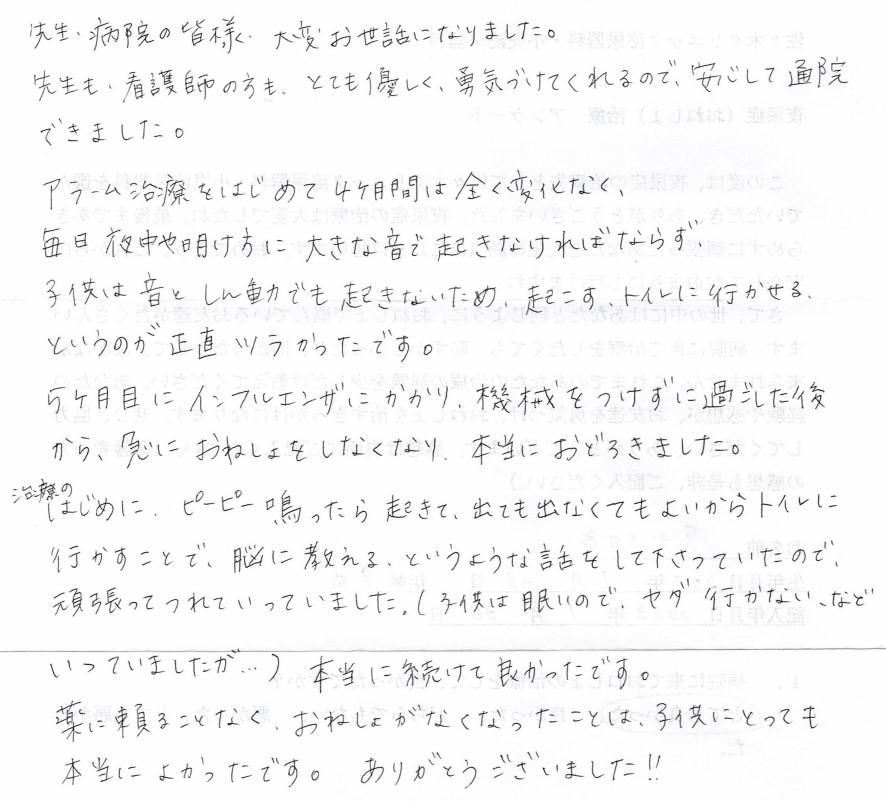 先生・病院の皆様、大変お世話になりました。
先生も・看護師の方も、とても優しく、勇気づけてくれるので、安心して通院
できました。
アラーム治療をはじめて4ヶ月間は全く変化なく、
毎日夜中や明け方に大きな音で起きなければならず、
子供は音としん動でも起きないため、起こす、トイレに行かせる、
というのが正直ツラかったです。
5ヶ月目にインフルエンザにかかり、機械をつけずに過ごした後
から、急におねしょをしなくなり、本当におどろきました。
治療の
はじめに、ピーピー鳴ったら起きて、出ても出なくてもよいからトイレに
行かすことで、脳に教える、というような話をして下さっていたので、
頑張ってつれていっていました。(子供は眠いので、ヤダ行かない、など
いっていましたが…)本当に続けて良かったです。
薬に頼ることなく、おねしょがなくなったことは、子供にとっても
本当によかったです。ありがとうございました!!